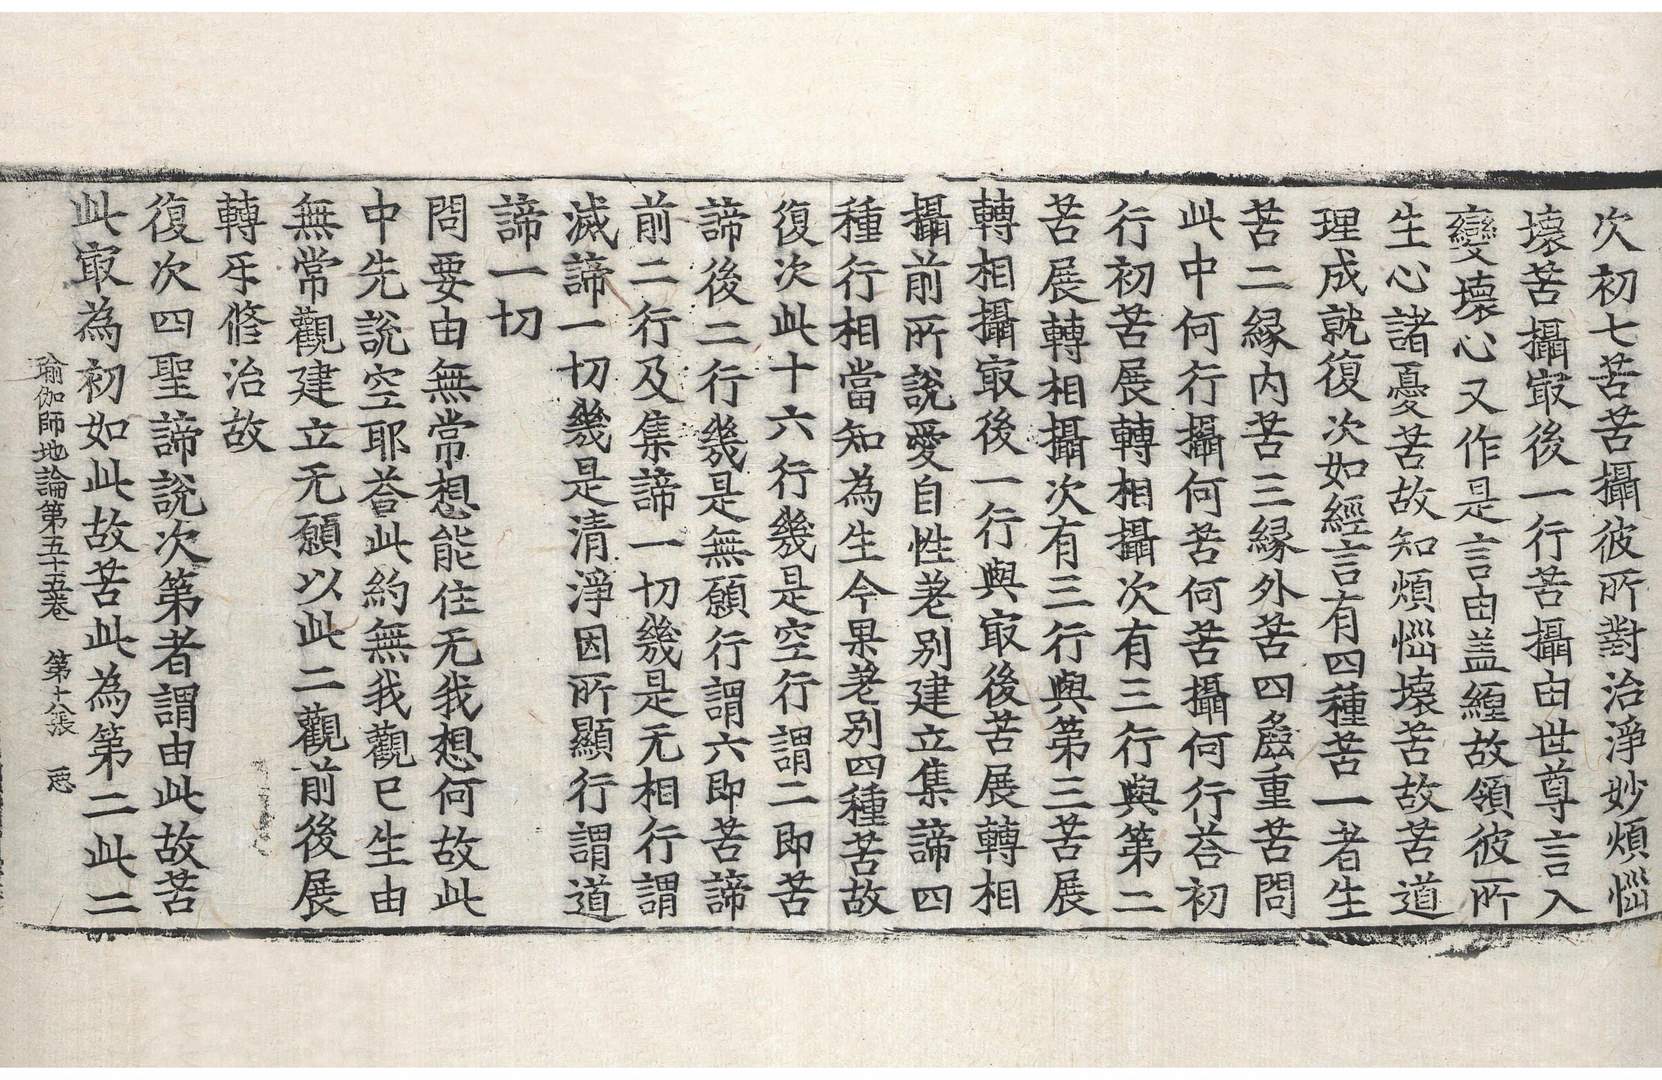 次初七苦苦攝彼所對治淨妙煩惱
壞苦攝㝡後一行苦攝由世尊言入
變壞心又作是言由盖纏故領彼所
生心諸憂苦故知煩惱壞苦故苦道
理成就復次如經言有四種苦一者生
苦二緣内苦三緣外苦四麁重苦問
此中何行攝何苦何苦攝何行荅初
行初苦展轉相攝次有三行與第二
苦展轉相攝次有三行與第三苦展
轉相攝㝡後一行與㝡後苦展轉相
攝前所說愛自性差別建立集諦四
種行相當知為生今果差別四種苦故
復次此十六行幾是空行謂二即苦
諦後二行幾是無願行謂六即苦諦
前二行及集諦一切幾是无相行謂
滅諦一切幾是清淨因所顯行謂道
諦一切
問要由無常想能住无我想何故此
中先說空耶荅此約無我觀已生由
無常觀建立无願以此二觀前後展
轉㸦修治故
復次四聖諦說次第者謂由此故苦
此㝡為初如此故苦此為第二此二
瑜伽師地論第五十五卷 第十八張 惡